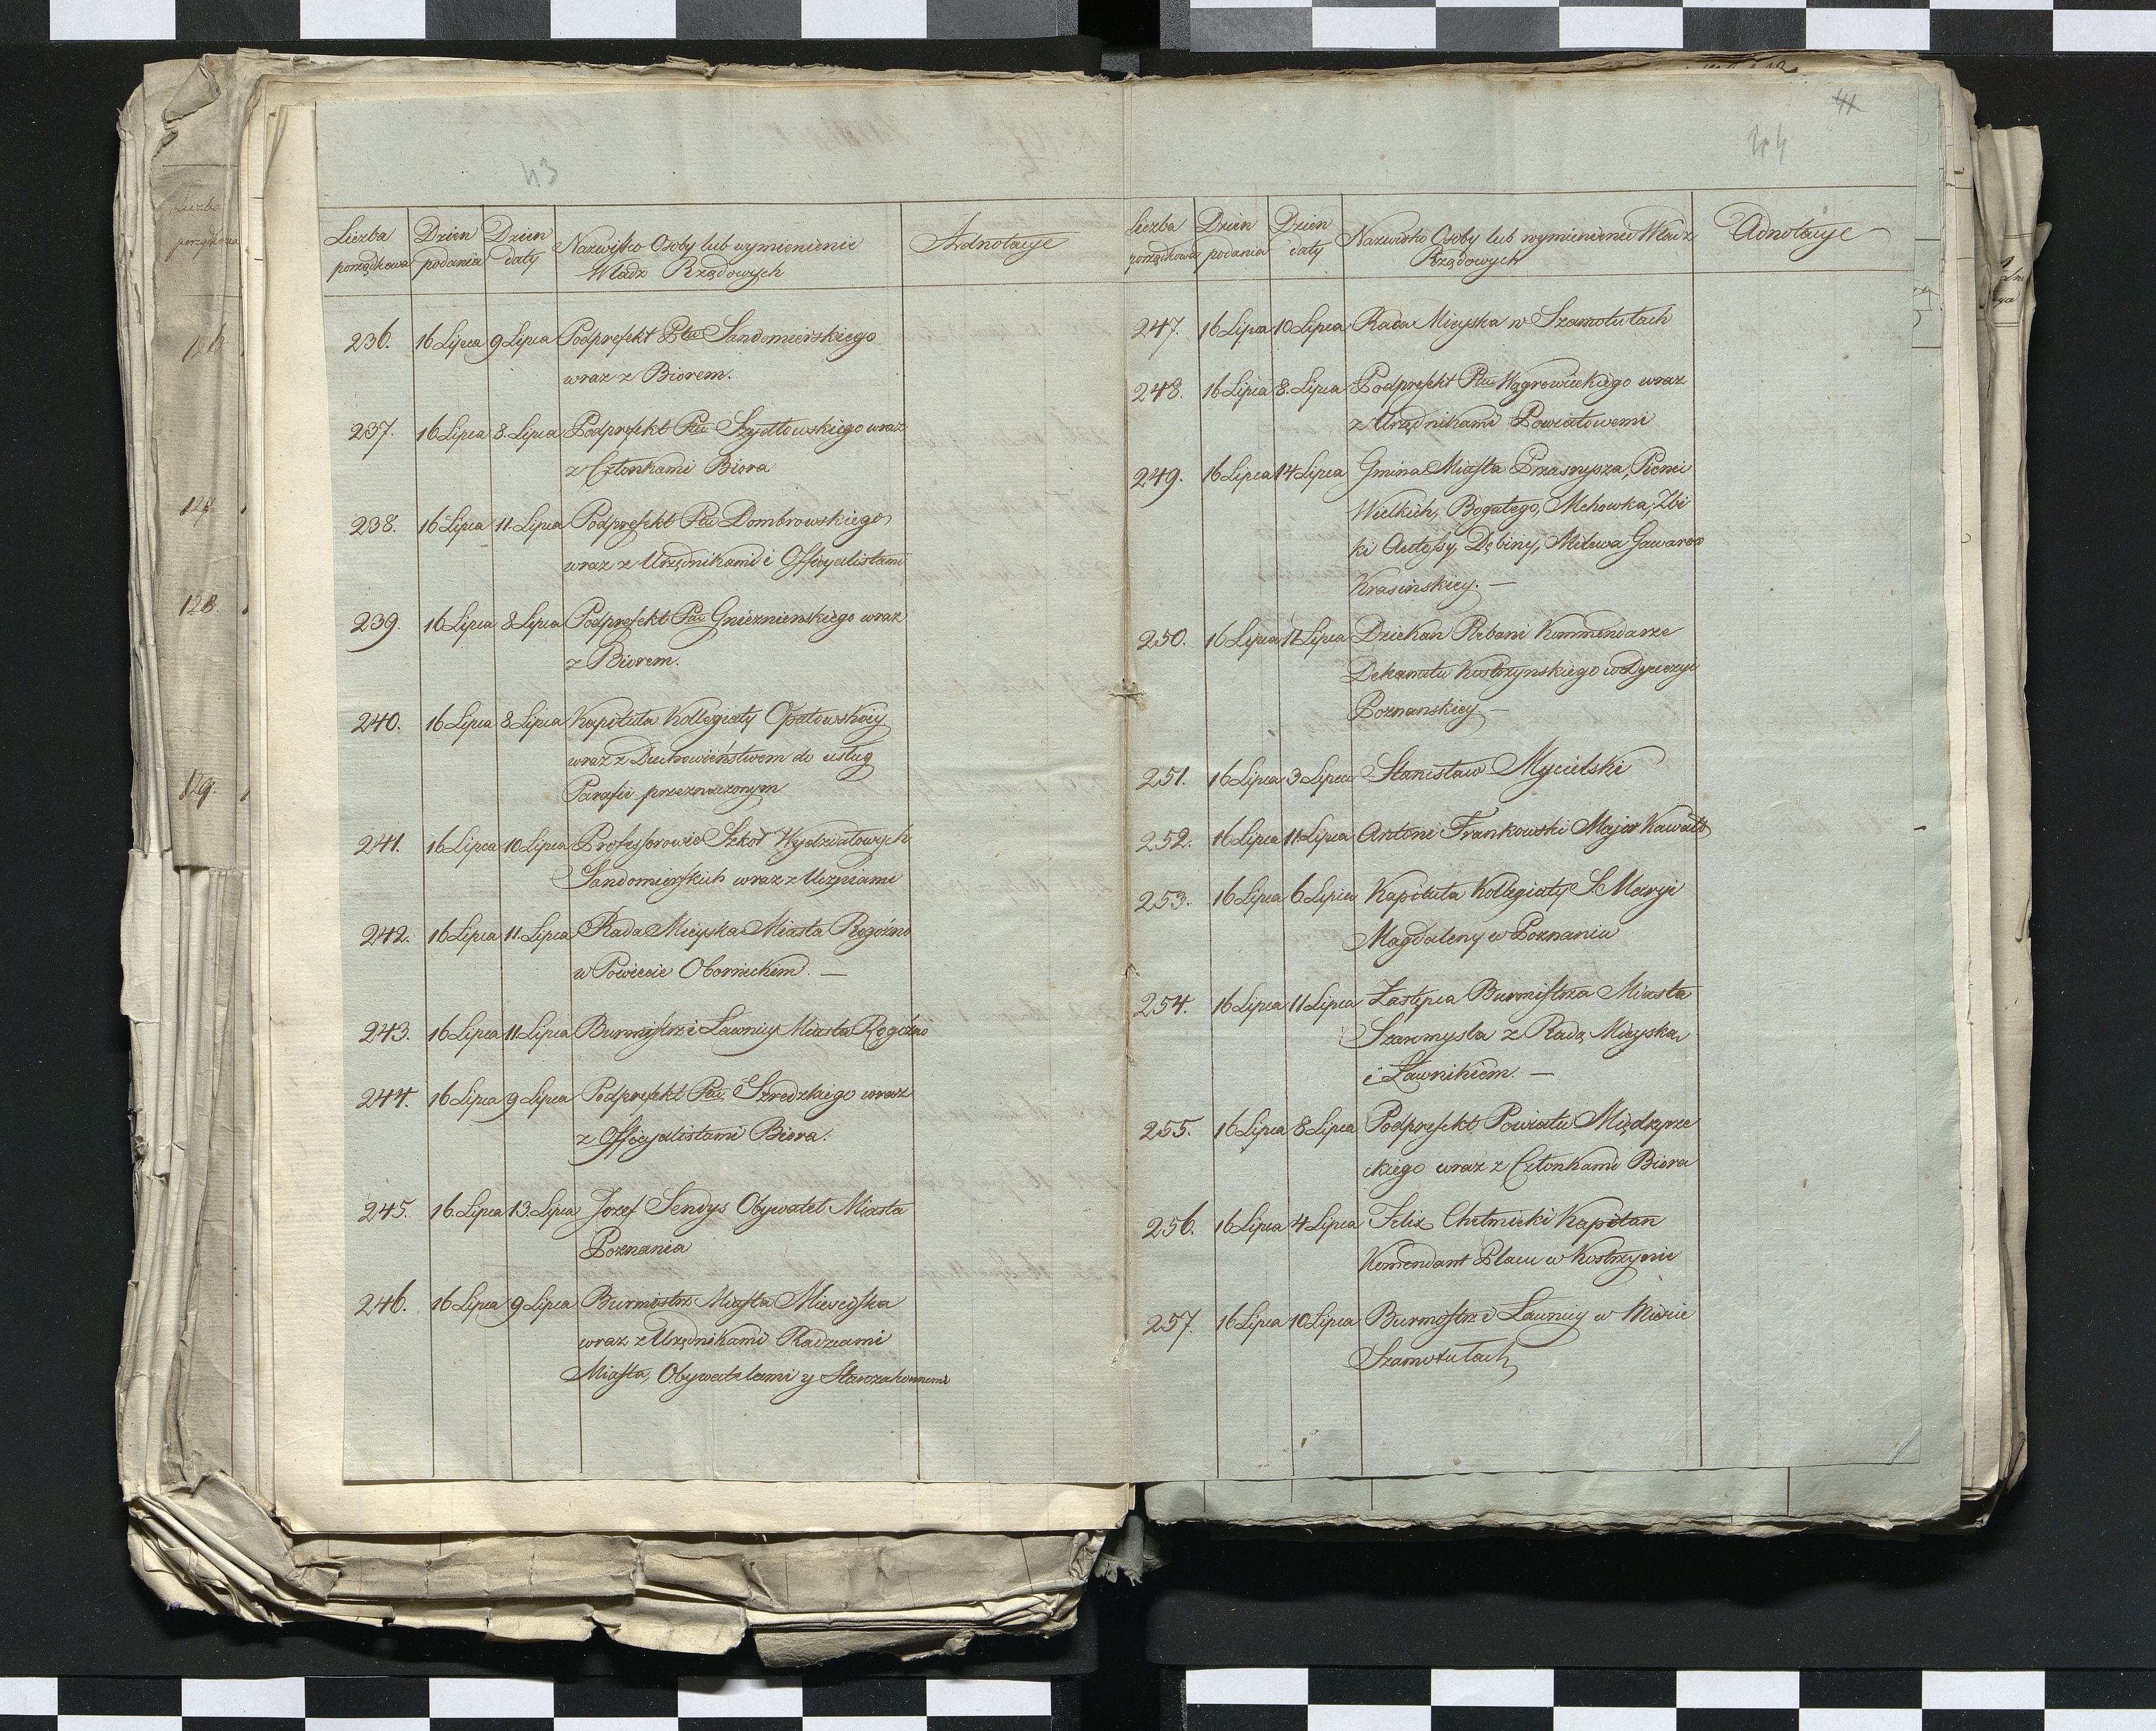 43
Liczba porządkowa
Dzien podania
Dzien daty
Nazwisko Osoby lub wymienienie Władz Rządowych
Adnotacye
236. 16 Lipca 9 Lipca Podprefekt Ptu Sandomierskiego
wraz z Biorem.
237. 16 Lipca 8. Lipca Podprefekt Ptu Szydłowskiego wraz
z Członkami Biora
238. 16 Lipca 11. Lipca Podprefekt Ptu Dombrowskiego
wraz z Urzędnikami i Officyalistami
239. 16 Lipca 8 Lipca Podprefekt Ptu Gnieznienskiego wraz
z Biorem.
240. 16 Lipca 8 Lipca Kapituła Kollegiaty Opatowskiey
wraz z Duchowieństwem do usług
Parafii przeznaczonym
241. 16 Lipca 10 Lipca Professorowie Szkoł Wydziałowych
Sandomierskich wraz z Uczniami
242. 16 Lipca 11. Lipca Rada Mieyska Miasta Rogoźno
w Powiecie Obornickim. —
243. 16 Lipca 11 Lipca Burmistrz i Ławnicy Miasta Rogoźno
244. 16 Lipca 9 Lipca Podprefekt Ptu Szredzkiego wraz
z Officyalistami Biora.
245. 16. Lipca 13. Lipca Jozef Sendys Obywatel Miasta
Poznania
246. 16 Lipca 9 Lipca Burmistrz Miasta
wraz z Urzędnikami Radzcami
Miasta, Obywatelami y Starozakonnemi
44
Liczba porządkowa
Dzien podania
Dzien daty
Nazwisko Osoby lub wymienienie Władz
Rządowych
Adnotacye
247. 16 Lipca 10 Lipca Rada Mieyska w Szamotułach
248. 16 Lipca 8. Lipca Podprefekt Ptu Wągrowieckiego wraz
z Urzędnikami Powiatowemi
249. 16 Lipca 14 Lipca Gmina Miasta Przasnysza,
Wielkich, Bogatego, Mchowka, Zbi
ki Dębiny, Milewa Gawarow
Krasińskiey. —
250. 16 Lipca 11 Lipca Dziekan Plebani Kommendarze
Dekanatu Kostrzynskiego w Dyecezyi
Poznanskiey. —
251. 16 Lipca 3 Lipca Stanisław Mycielski
252. 16 Lipca 11 Lipca Antoni Frankowski Major Kawall
253. 16 Lipca 6 Lipca Kapituła Kollegiaty S Maryi
Magdaleny w Poznaniu
254. 16 Lipca 11 Lipca Zastępca Burmistrza Miasta
z Radą Mieyską
i Ławnikiem. —
255. 16 Lipca 8 Lipca Podprefekt Powiatu Międzyrze
ckiego wraz z Członkami Biora
256. 16 Lipca 4 Lipca Felix Chełmicki Kapitan
Komendant Placu w Kostrzynie
257. 16 Lipca 10 Lipca Burmistrz i Ławnicy w Mieście
Szamotułach
126
127
128.
129.